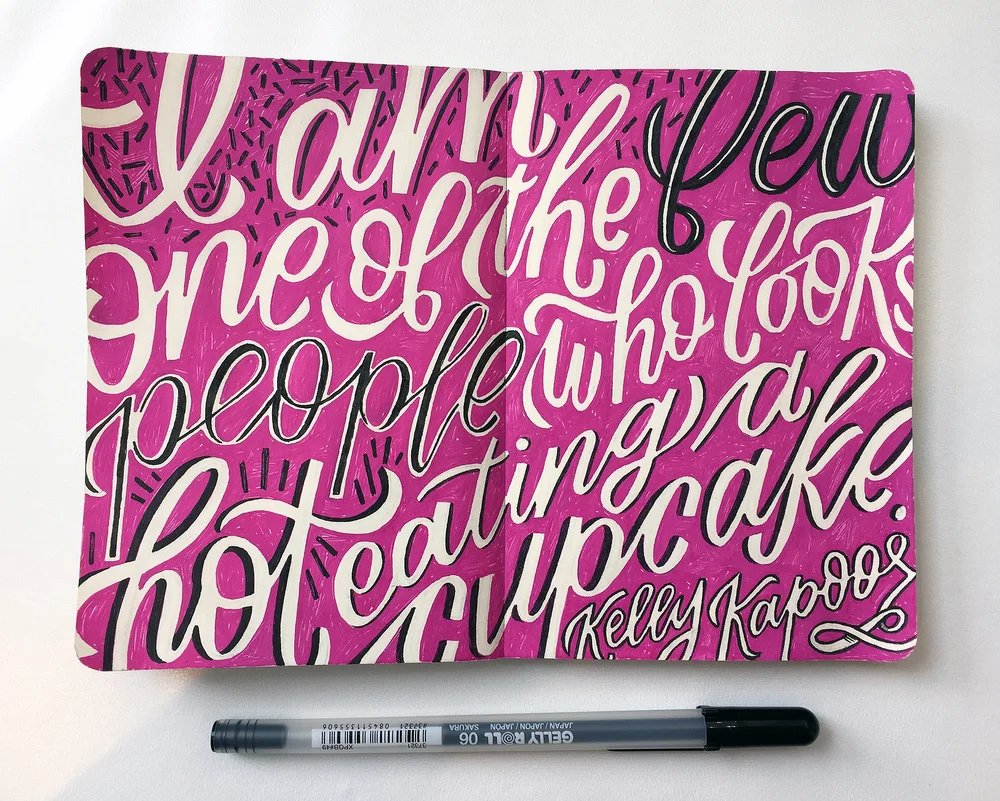 I am
one of the few
people who looks
hot eating a
cupcake.
Kelly Kapoor
GELLY ROLL 06 SAKURA
JAPAN / JAPON / JAPÓN
37321 XPGB#49
#37321 084511355606